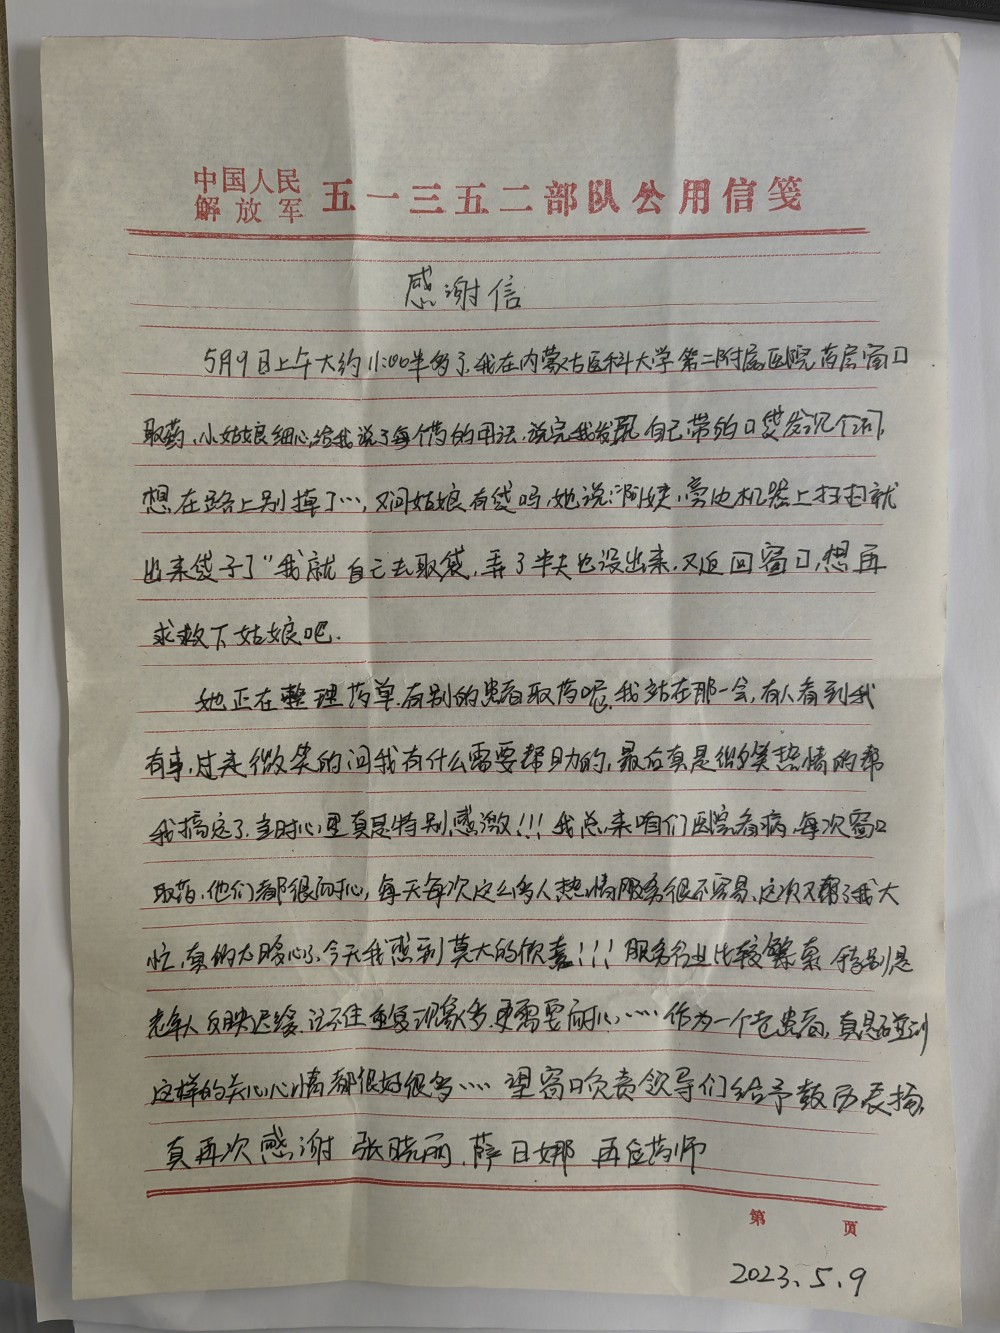 中国人民解放军 五一三五二部队公用信笺
感谢信
5月9日上午大约11:00半多了,我在内蒙古医科大学第二附属医院药房窗口
取药,小姑娘细心给我说了每个药的用法,说完我发现自己带的口袋发沉个洞,
想在路上别掉了…,又问姑娘有袋吗,她说:"阿姨,旁边机器上扫扫就
出来袋子了"我就自己去取袋,弄了半天也没出来,又返回窗口,想再
求救下姑娘吧.
她正在整理药单,有别的患者取药呢,我站在那一会,有人看到我
有事,过来微笑的问我有什么需要帮助的,最后真是微笑热情的帮
我搞定了,当时心里真是特别感激!!!我总来咱们医院看病,每次窗口
取药,他们都很耐心,每天每次这么多人热情服务很不容易,这次又帮了我大
忙,真的太暖心了,今天我感到莫大的欣喜!!!服务行业比较繁氣 特别是
老年人反映迟缓,记不住重复现象多,更需要耐心……作为一个老患者,真是碰到
这样的关心心情都很好很多……望窗口负责领导们给予鼓历表扬,
真再次感谢 张晓丽,薛日娜 药师
第 页
2023.5.9